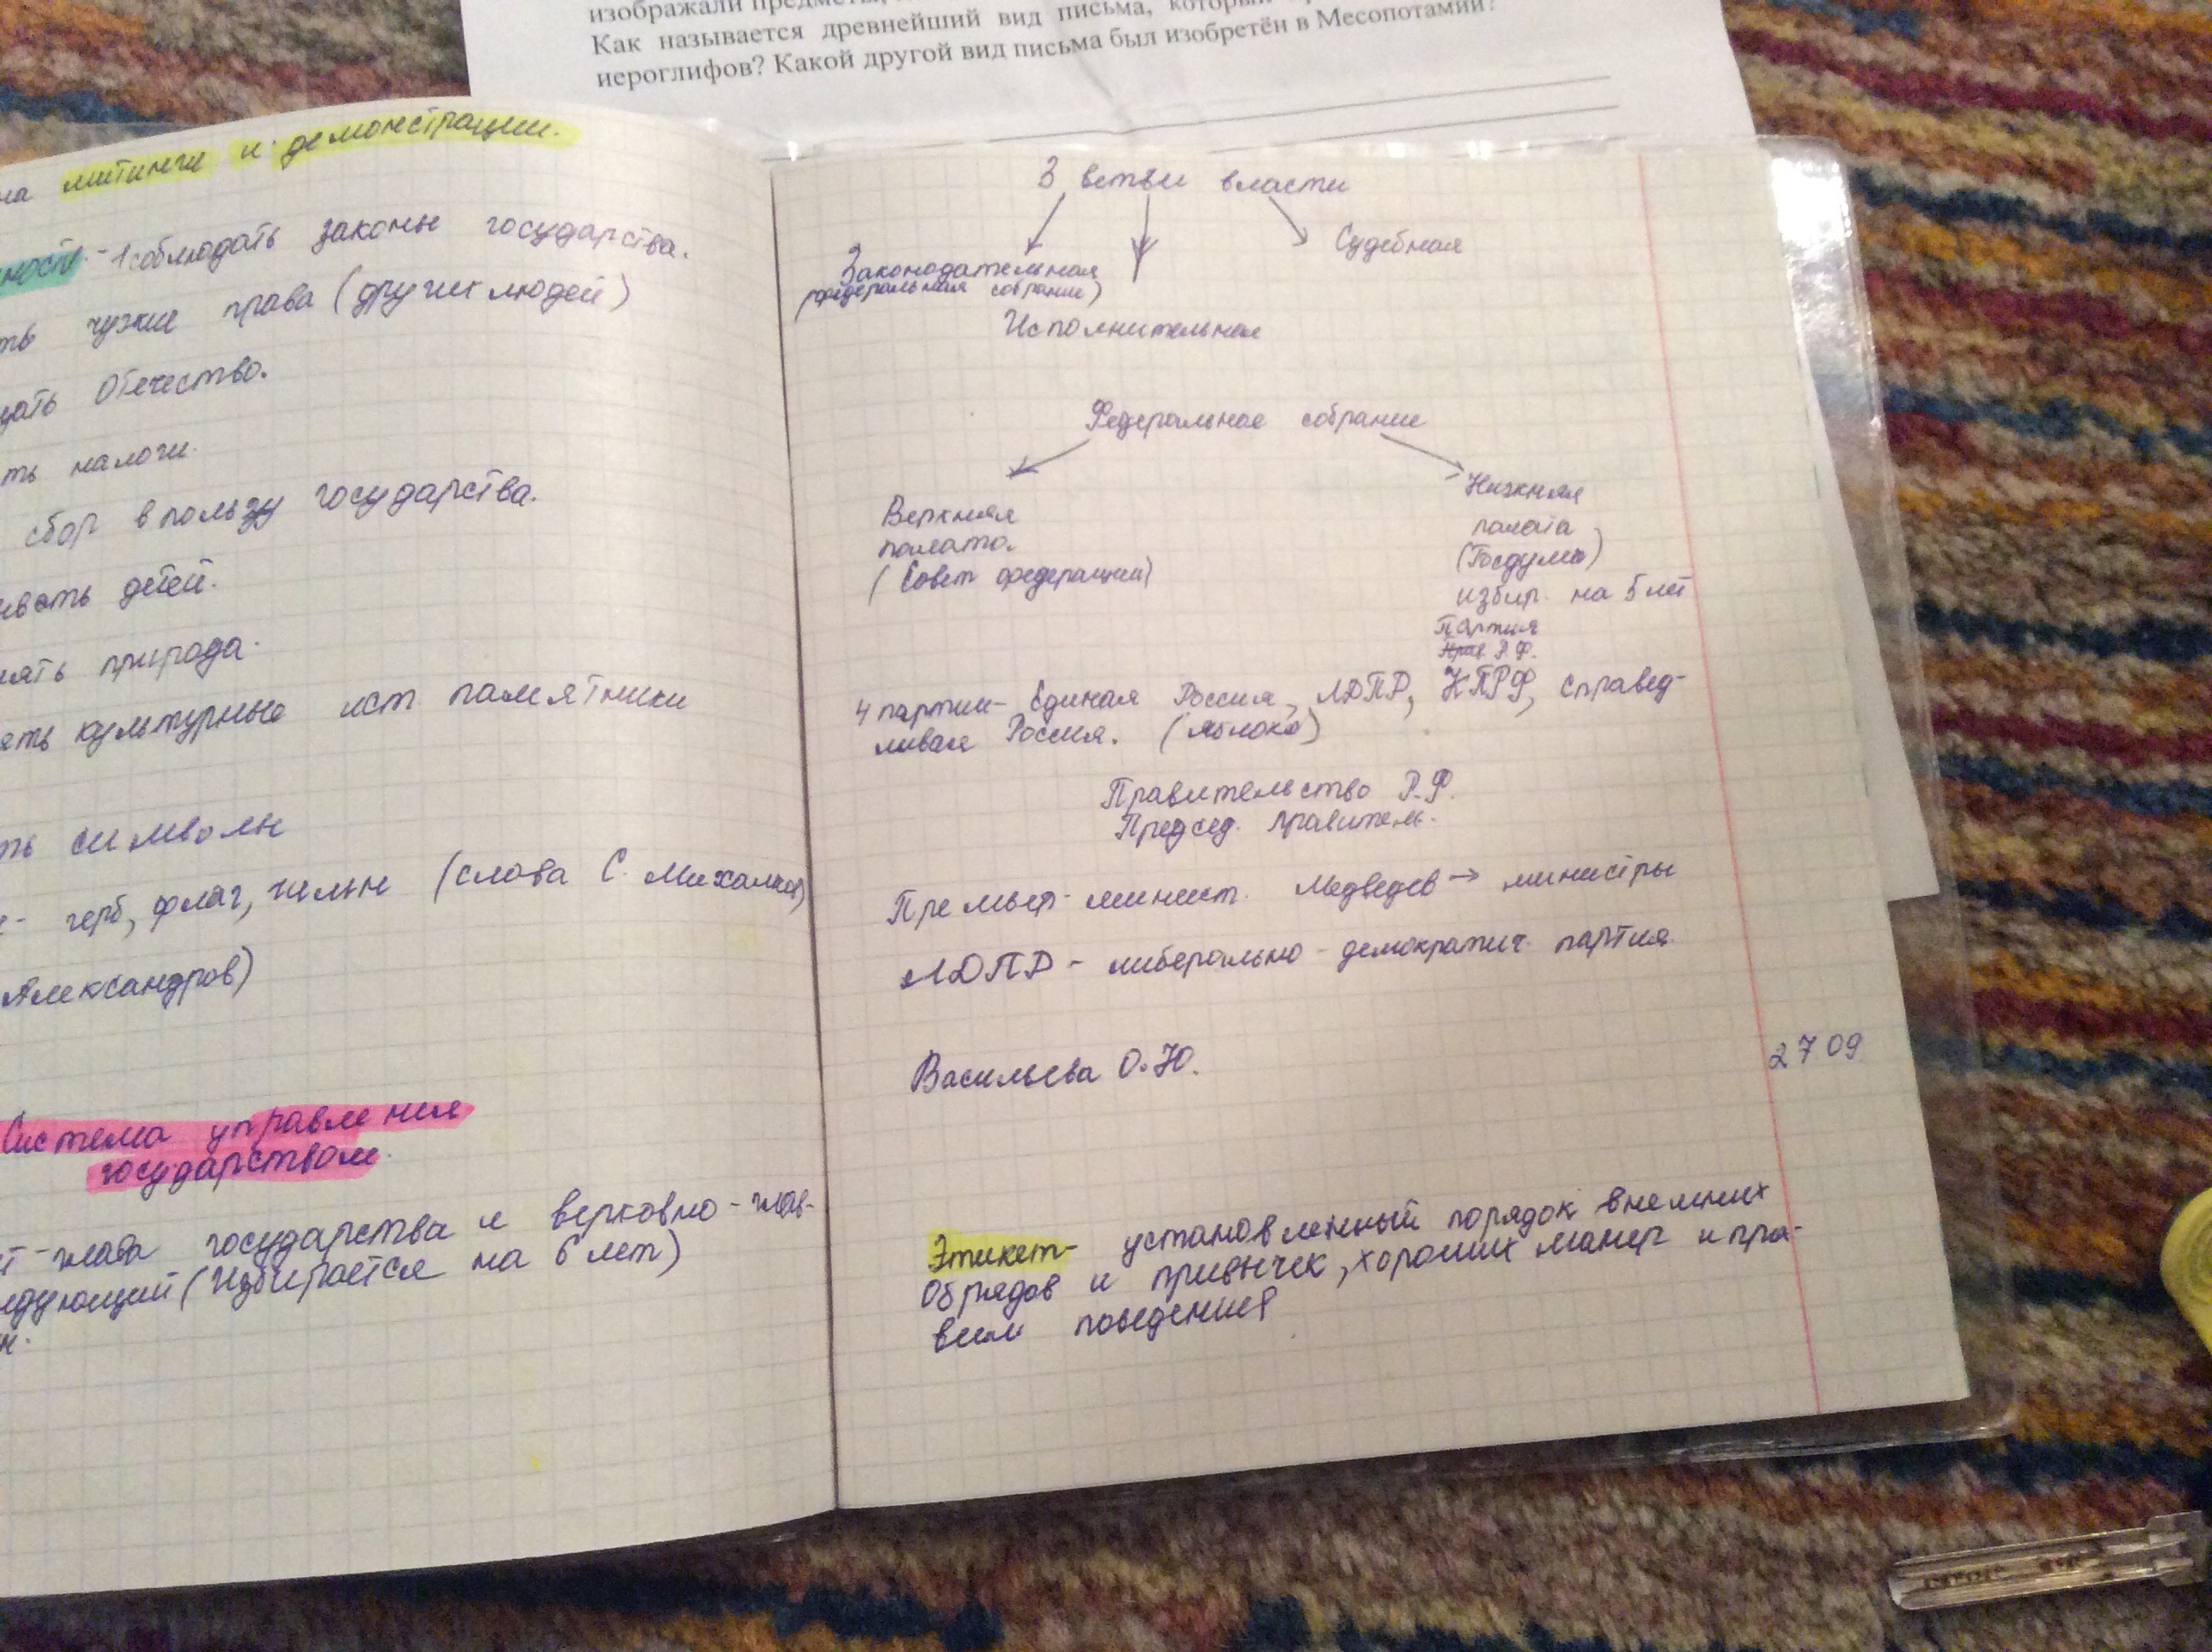 изображали предметы,
Как называется древнейший вид письма, который
иероглифов? Какой другой вид письма был изобретён в Месопотамии?
на митинги и демонстрации.
ность - 1 соблюдать законы государства.
ть чужие права (других людей)
щать Отечество.
ть налоги.
сбор в пользу государства.
ывать детей.
нять природа.
ять культурные ист. памятники
ть символы
герб, флаг, гимн (слова С. Михалков)
Александров)
Система управления
государством.
т - глава государства и верховно-глав-
ндующий (Избирается на 6 лет)
н.
3 ветви власти
Законодательная
(федеральная собрание)
Судебная
Исполнительная
Федеральное собрание
Верхняя
палата.
(Совет федерации)
Нижняя
палата
(Госдума)
избир. на 5 лет
Партия
Р.Ф.
4 партии - Единая Россия, ЛДПР, КПРФ, Справед-
ливая Россия. (Яблоко)
Правительство Р.Ф.
Председ. правитель.
Премьер-минист. Медведев → министры
ЛДПР - либерально-демократич. партия
Васильева О.Ю.
27 09
Этикет - установленный порядок внешних
обрядов и привычек, хороших манер и пра-
вил поведения